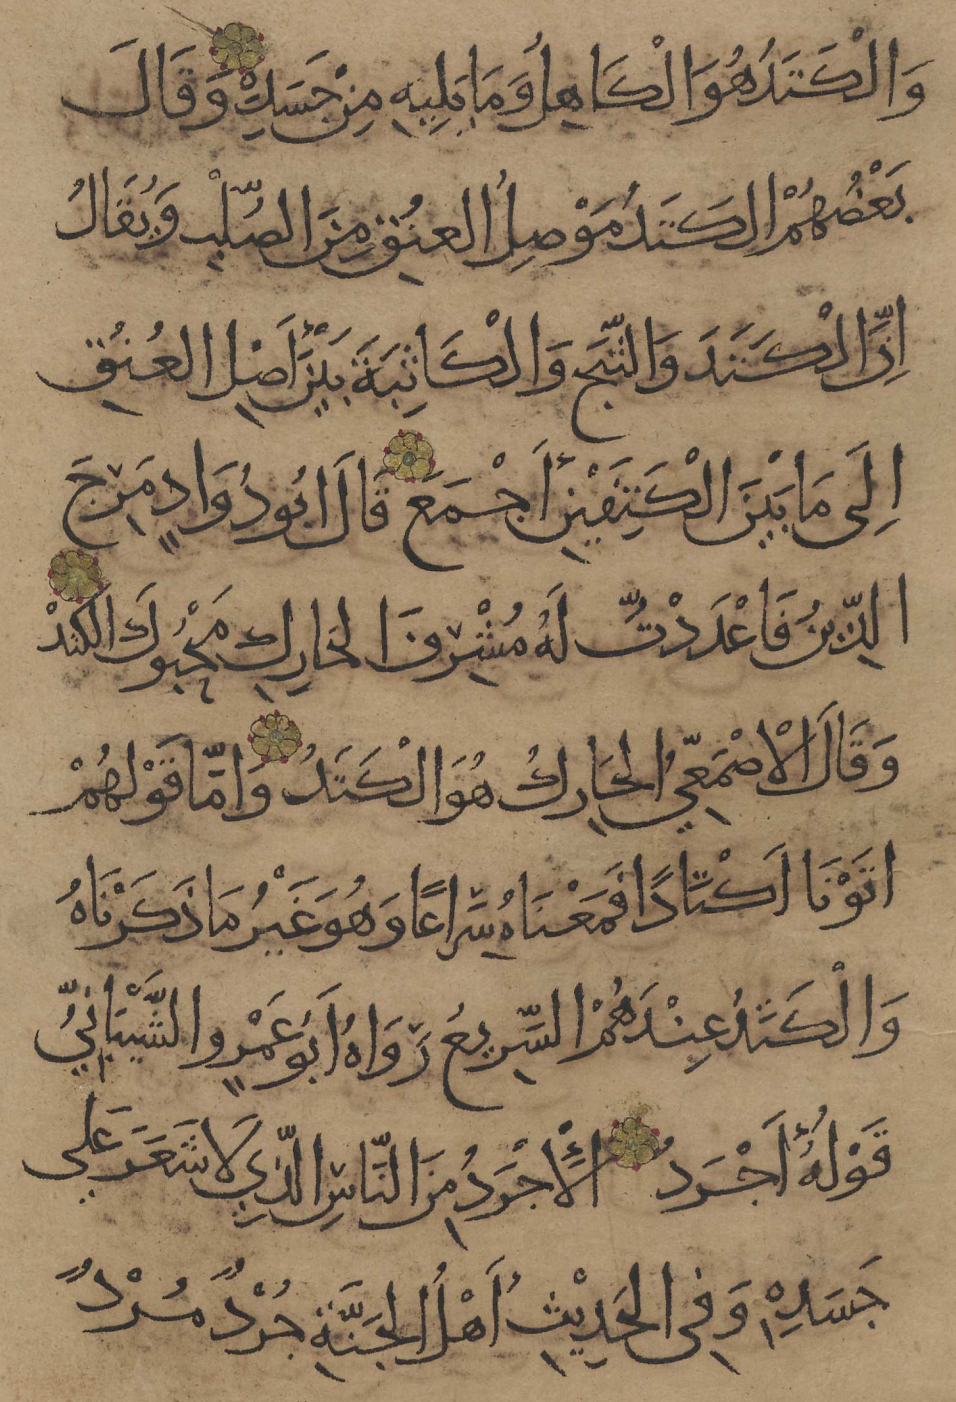 وَالْكَتَدُ هُوَ الْكَاهِلُ وَمَا يَلِيهِ مِنْ جَسَدِهِ وَقَالَ
بَعْضُهُمْ الكَتَدُ مَوْصِلُ العُنُقِ مِنَ الصُّلْبِ وَيُقَالُ
اِنَّ الْكَتَدَ وَالثَّبَجَ وَالْكَاثِبَةَ بَيْنَ أَصْلِ العُنُقِ
اِلَى مَا بَيْنَ الْكَتِفَيْنِ أَجْمَعَ قَالَ ابُو دُوَادٍ مَرِجَ
الدِّينُ فَاعْدَدْتُ لَهُ مُشْرِفَ الحَارِكِ مَحْبُوكَ الكَتَدْ
وَقَالَ الْاصْمَعِيُّ الحَارِكُ هُوَ الْكَتَدُ وَامَّا قَوْلهُمْ
اتَوْنَا اَكْتَادًا فَمَعْنَاهُ سِرَاعًا وَهُوَ غَيْرُ مَا ذَكَرْنَاهُ
وَالْكَتَدُ عِنْدَهُمْ السَّرِيعُ رَوَاهُ أَبُو عَمْرٍو الشَّيْبَانِيُّ
قَوْلُهُ أَجْرَدُ الْأَجْرَدُ مِنَ النَّاسِ الَّذِي لَا شَعَرَ عَلى
جَسَدِهِ وَفِي الحَدِيْثِ أَهْلُ الجَنَّةِ جُرْدٌ مُرْدٌ